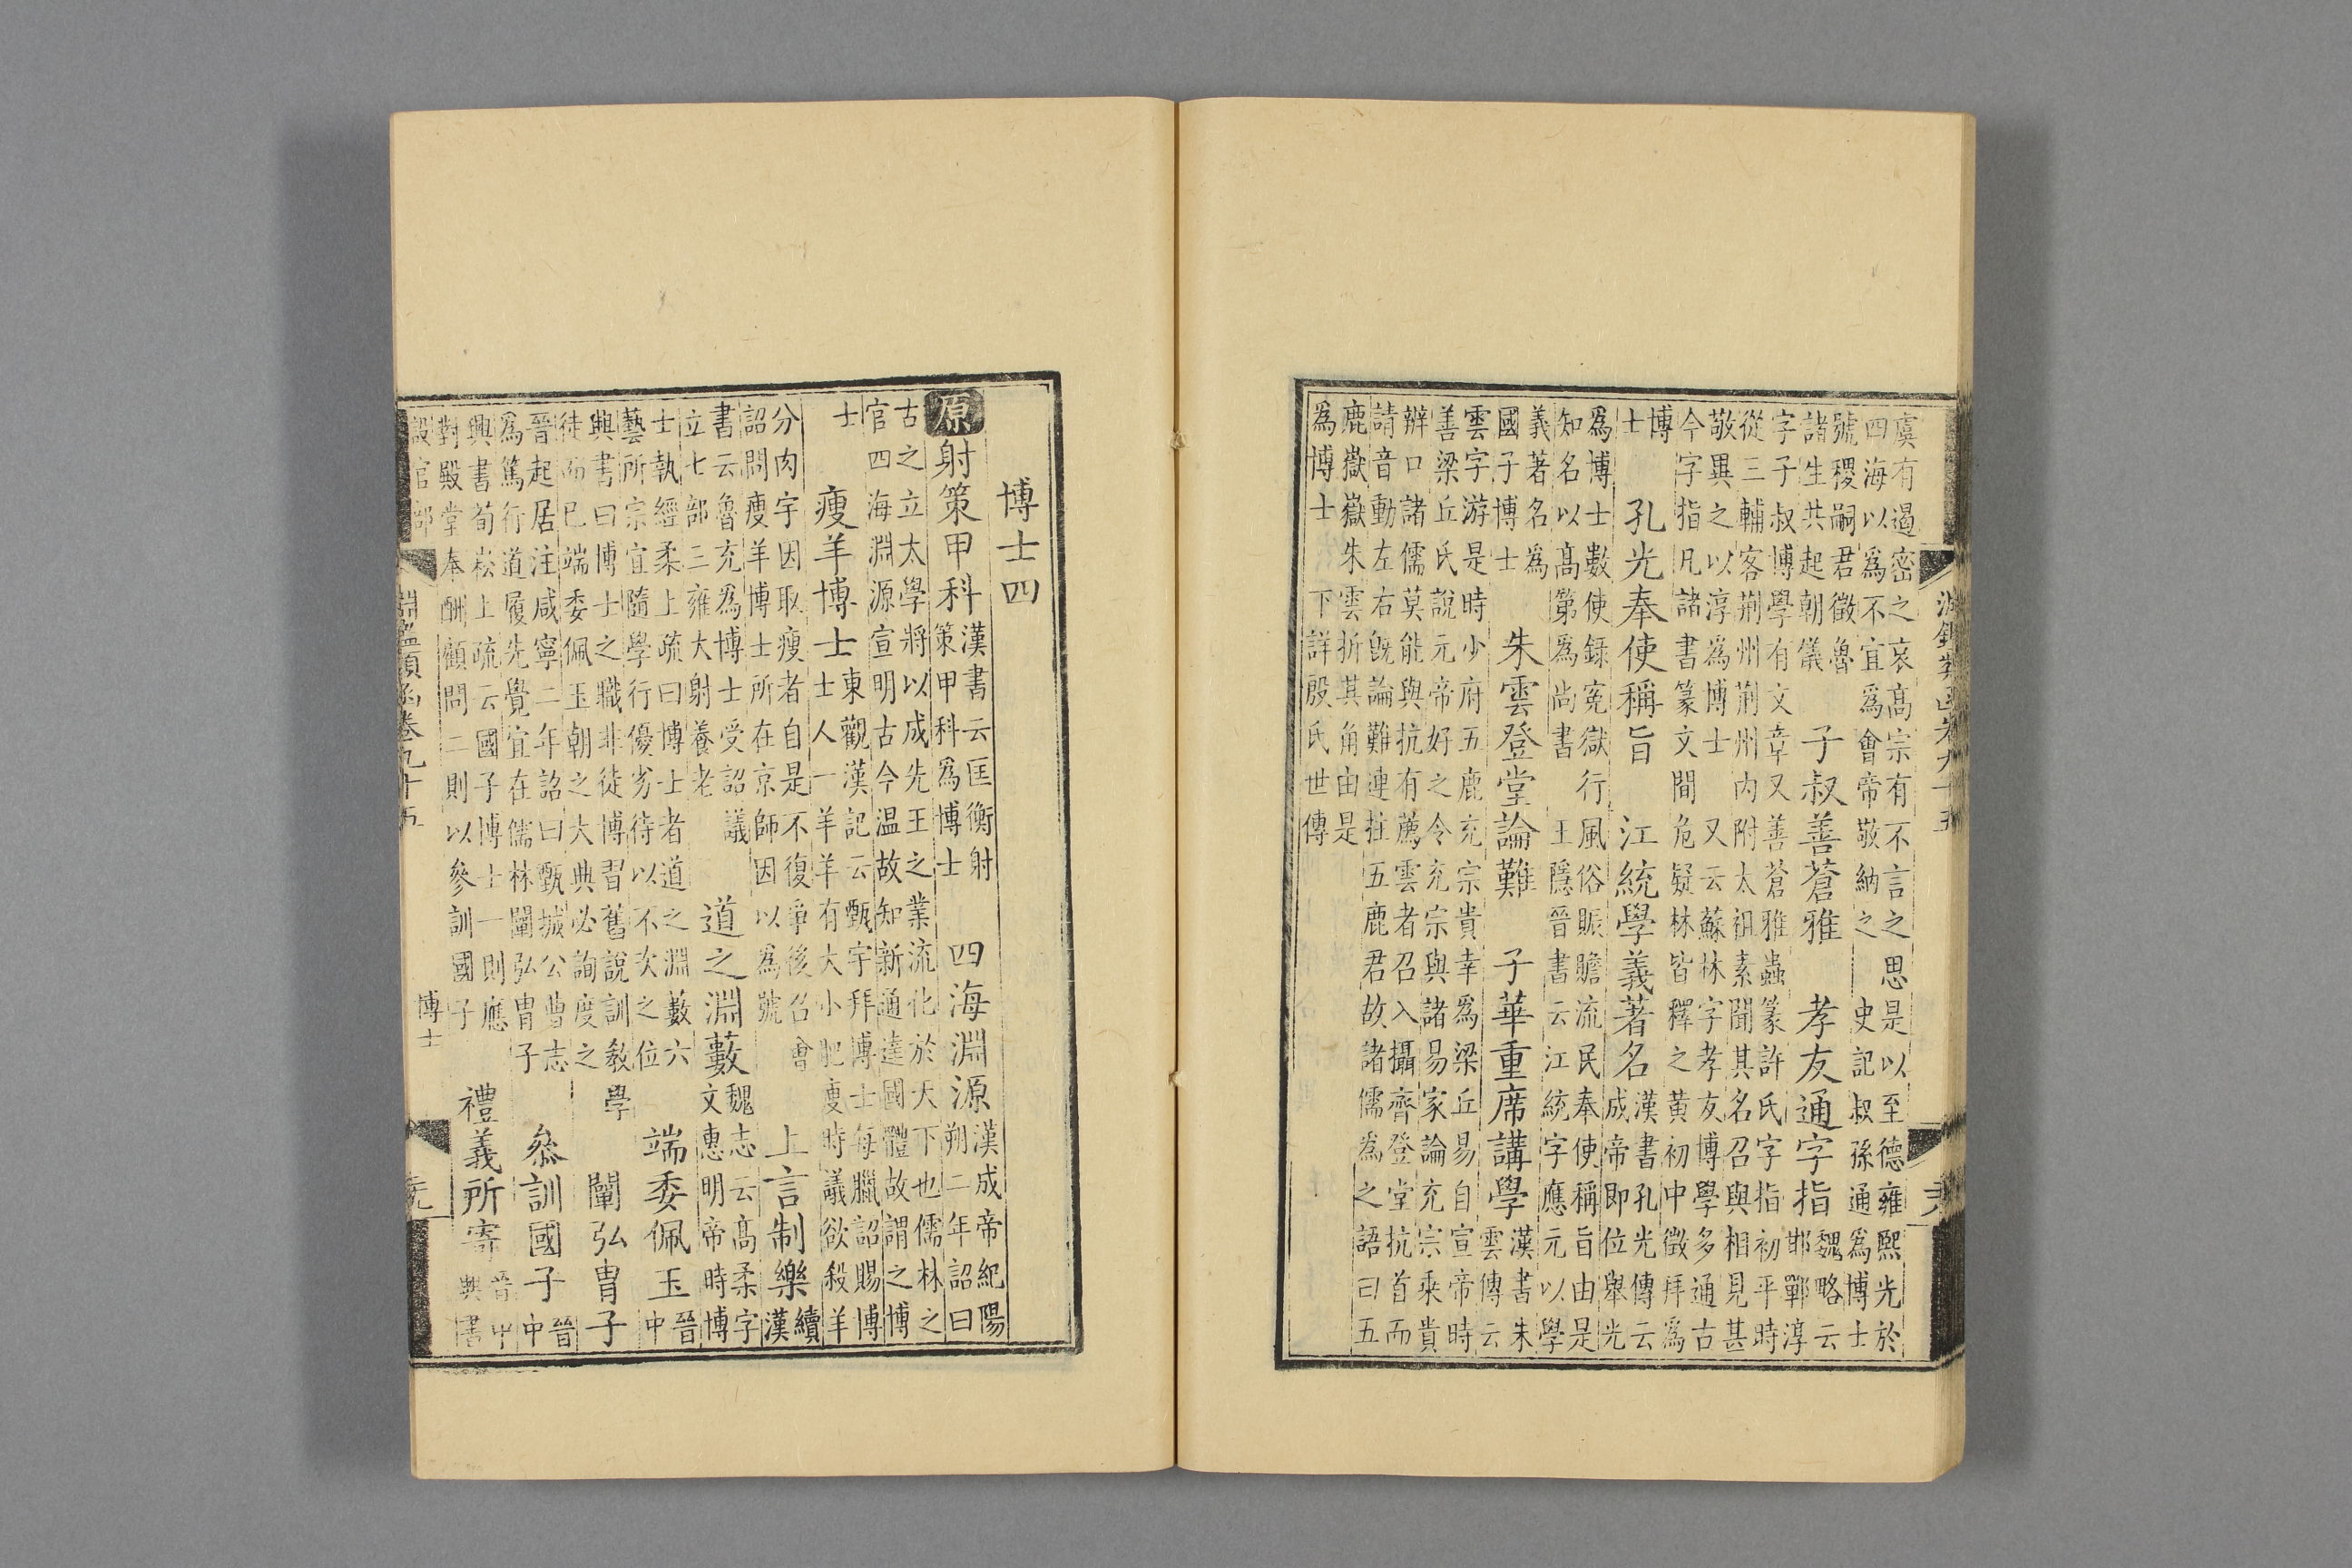 淵鑑類函卷九十五
虞有遏密之哀高宗有不言之思是以至德雍熙光於
四海以爲不宜爲會帝敬納之 史記叔孫通爲博士
號稷嗣君徵魯
諸生共起朝儀
子叔善蒼雅 孝友通字指
魏略云
邯鄲淳
字子叔博學有文章又善蒼雅蟲篆許氏字指初平時
從三輔客荆州荆州内附太祖素聞其名召與相見甚
敬異之以淳爲博士 又云蘇林字孝友博學多通古
今字指凡諸書篆文間危疑林皆釋之黄初中徵拜爲
博
士
孔光奉使稱旨 江統學義著名
漢書孔光傳云
成帝即位舉光
爲博士數使錄寃獄行風俗賑贍流民奉使稱旨由是
知名以高第爲尚書 王隱晉書云江統字應元以學
義著名爲
國子博士
朱雲登堂論難 子華重席講學
漢書朱
雲傳云
雲字游是時少府五鹿充宗貴幸爲梁丘易自宣帝時
善梁丘氏說元帝好之令充宗與諸易家論充宗乘貴
辨口諸儒莫能與抗有薦雲者召入攝齊登堂抗首而
請音動左右旣論難連拄五鹿君故諸儒爲之語曰五
鹿嶽嶽朱雲折其角由是
爲博士 下詳殷氏世傳
博士四
原 射策甲科
漢書云匡衡射
策甲科爲博士
四海淵源
漢成帝紀陽
朔二年詔曰
古之立太學將以成先王之業流化於天下也儒林之
官四海淵源宣明古今温故知新通達國體故謂之博
士
瘦羊博士
東觀漢記云甄宇拜博士每臘詔賜博
士人一羊羊有大小肥瘦時議欲殺羊
分肉宇因取瘦者自是不復爭後召會
詔問瘦羊博士所在京師因以爲號
上言制樂
續
漢
書云魯充爲博士受詔議
立七部三雍大射養老
道之淵藪
魏志云高柔字
文惠明帝時博
士執經柔上疏曰博士者道之淵藪六
藝所宗宜隨學行優劣待以不次之位
端委佩玉
晉
中
興書曰博士之職非徒博習舊說訓敎學
徒而已端委佩玉朝之大典必詢度之
闡弘胄子
晉起居注咸寧二年詔曰甄城公曹志
爲篤行道履先覺宜在儒林闡弘胄子
叅訓國子
晉
中
興書荀崧上疏云國子博士一則應
對殿堂奉酬顧問二則以參訓國子
禮義所寄
晉中
興書
設官部 淵鑑類函卷九十五 博士